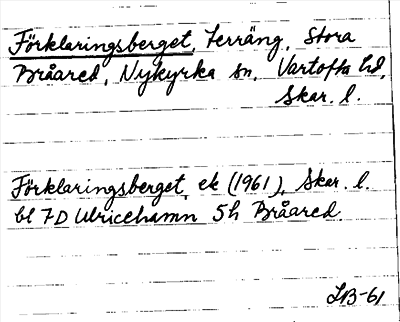 Förklaringsberget, terräng, Stora
Bråared, Nykyrka sn, Vartofta hd,
Skar. l.
Förklaringsberget, ek (1961), Skar. l.
bl 7D Ulricehamn 5h Bråared.
LB-61